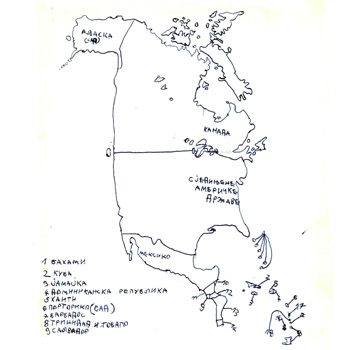 АЛАСКА
САД
КАНАДА
СЈЕДИЊЕНЕ
АМЕРИЧКЕ
ДРЖАВЕ
МЕКСИКО
1 БАХАМИ
2 КУБА
3 ЈАМАЈКА
4 ДОМИНИКАНСКА РЕПУБЛИКА
5 ХАИТИ
6 ПОРТОРИКО (САД)
7 БАРБАДОС
8 ТРИНИДАД И ТОБАГО
9 САЛВАДОР